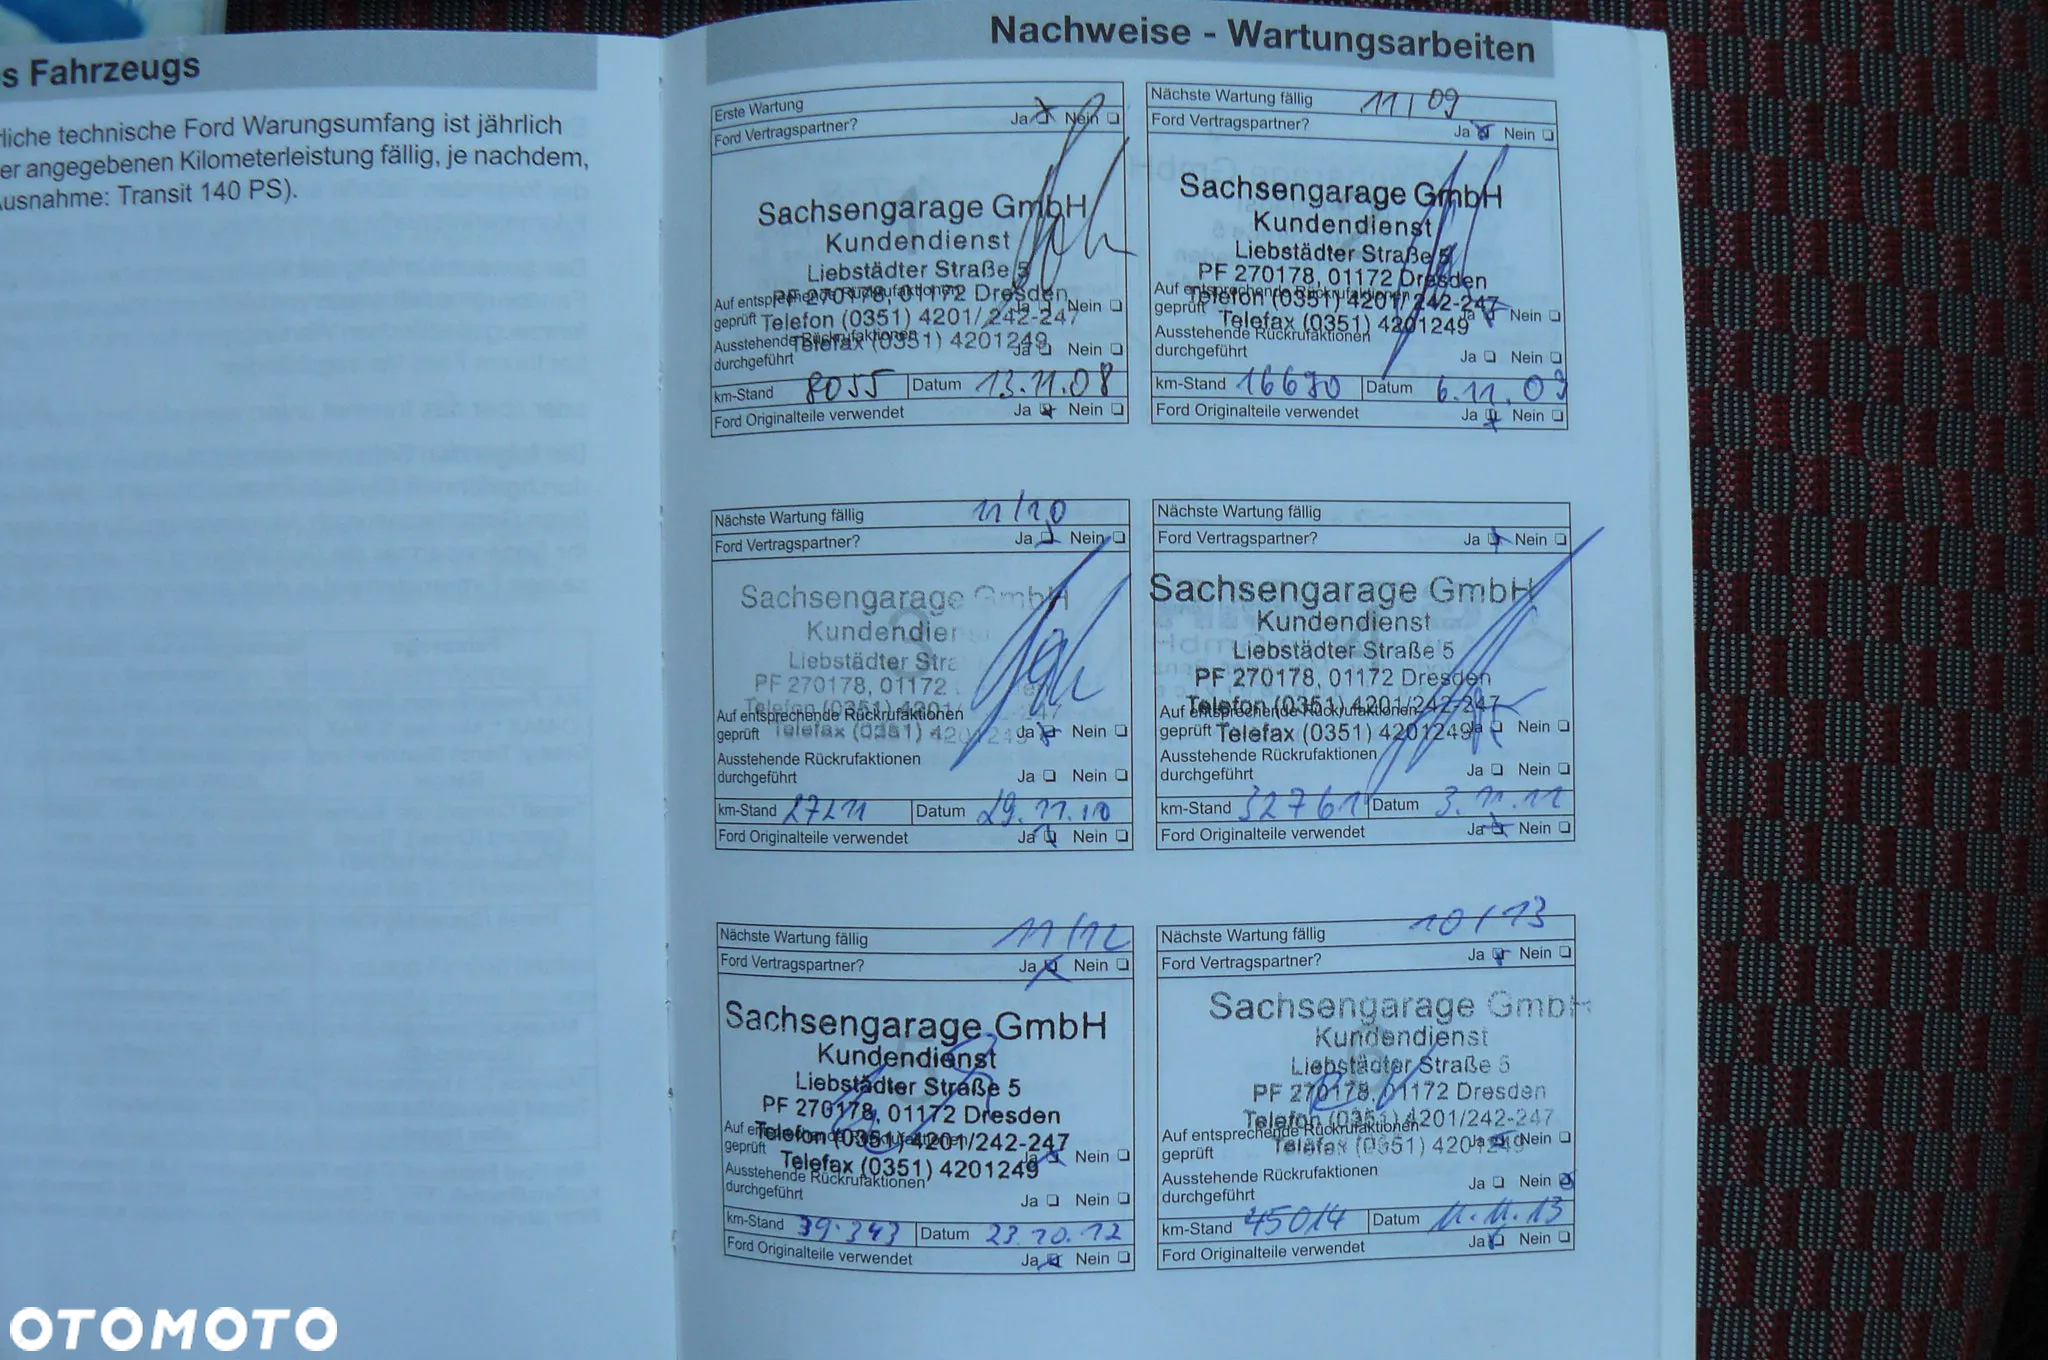 s Fahrzeugs
rliche technische Ford Warungsumfang ist jährlich
er angegebenen Kilometerleistung fällig, je nachdem,
Ausnahme: Transit 140 PS).
Nachweise - Wartungsarbeiten
Erste Wartung
Ford Vertragspartner? Ja Nein
Sachsengarage GmbH
Kundendienst
Liebstädter Straße 5
PF 270178, 01172 Dresden
Telefon (0351) 4201/242-247
Telefax (0351) 4201249
Auf entsprechende Rückrufaktionen
geprüft Ja Nein
Ausstehende Rückrufaktionen
durchgeführt Ja Nein
km-Stand 8055 Datum 13.11.08
Ford Originalteile verwendet Ja Nein
Nächste Wartung fällig 11/09
Ford Vertragspartner? Ja Nein
Sachsengarage GmbH
Kundendienst
Liebstädter Straße 5
PF 270178, 01172 Dresden
Telefon (0351) 4201/242-247
Telefax (0351) 4201249
Auf entsprechende Rückrufaktionen
geprüft Ja Nein
Ausstehende Rückrufaktionen
durchgeführt Ja Nein
km-Stand 16690 Datum 6.11.09
Ford Originalteile verwendet Ja Nein
Nächste Wartung fällig 11/10
Ford Vertragspartner? Ja Nein
3
Sachsengarage GmbH
Kundendien
Liebstädter Stra
PF 270178, 01172
Telefon (0351) 4201/242-247
Telefax (0351) 4201249
Auf entsprechende Rückrufaktionen
geprüft Ja Nein
Ausstehende Rückrufaktionen
durchgeführt Ja Nein
km-Stand 27211 Datum 29.11.10
Ford Originalteile verwendet Ja Nein
Nächste Wartung fällig
Ford Vertragspartner? Ja Nein
Sachsengarage GmbH
Kundendienst
Liebstädter Straße 5
PF 270178, 01172 Dresden
Telefon (0351) 4201/242-247
Telefax (0351) 4201249
Auf entsprechende Rückrufaktionen
geprüft Ja Nein
Ausstehende Rückrufaktionen
durchgeführt Ja Nein
km-Stand 32761 Datum 3.11.11
Ford Originalteile verwendet Ja Nein
Nächste Wartung fällig 11/12
Ford Vertragspartner? Ja Nein
5
Sachsengarage GmbH
Kundendienst
Liebstädter Straße 5
PF 270178, 01172 Dresden
Telefon (0351) 4201/242-247
Telefax (0351) 4201249
Auf entsprechende Rückrufaktionen
geprüft Ja Nein
Ausstehende Rückrufaktionen
durchgeführt Ja Nein
km-Stand 39.343 Datum 23.10.12
Ford Originalteile verwendet Ja Nein
Nächste Wartung fällig 10/13
Ford Vertragspartner? Ja Nein
6
Sachsengarage GmbH
Kundendienst
Liebstädter Straße 5
PF 270178, 01172 Dresden
Telefon (0351) 4201/242-247
Telefax (0351) 4201249
Auf entsprechende Rückrufaktionen
geprüft Ja Nein
Ausstehende Rückrufaktionen
durchgeführt Ja Nein
km-Stand 45014 Datum 11.11.13
Ford Originalteile verwendet Ja Nein
OTOMOTO